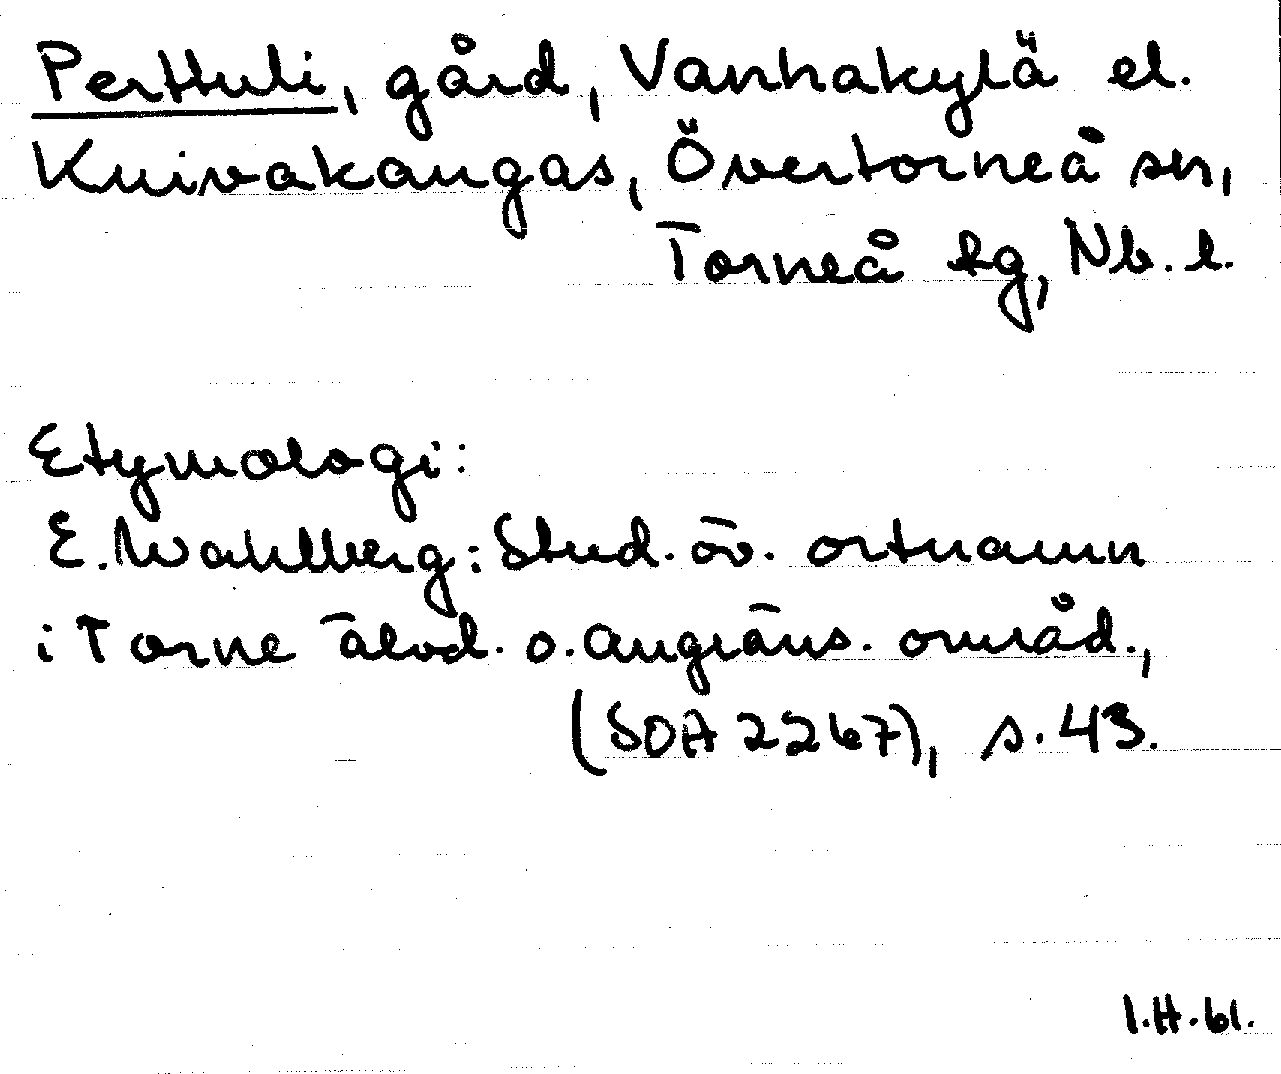 Perttuli, gård, Vanhakylä el.
Kuivakangas, Övertorneå sn,
Torneå tg, Nb. l.
Etymologi:
E. Wahlberg: Stud. öv. ortnamn
i Torne älvd. o. angräns. områd.,
(SOA 2267), s. 43.
I.H. 61.